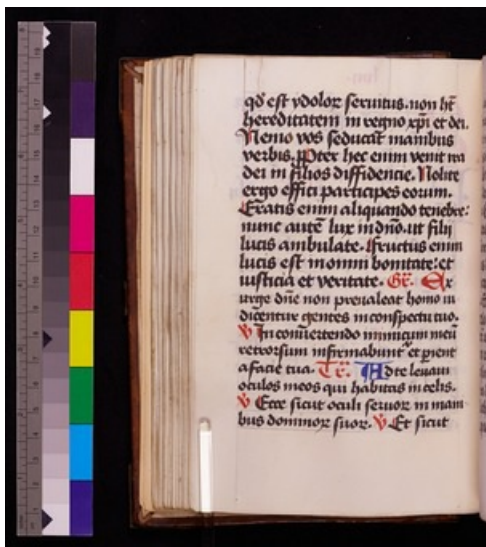 qd est ydolor seruitus. non ht
hereditatem in regno xpi et dei.
Nemo vos seducat inanibus
verbis. ppter hec enim venit ira
dei in filios diffidencie. Nolite
ergo effici participes eorum.
Eratis enim aliquando tenebre:
nunc autē lux in dno. ut filij
lucis ambulate. fructus enim
lucis est in omni bonitate: et
iusticia et veritate. Gr. Ex
urge dne non preualeat homo iu
dicentur gentes in conspectu tuo.
V In conuertendo inimicum meū
retrorsum infirmabunt et pient
a facie tua. Tr. Ad te leuaui
oculos meos qui habitas in celis.
V Ecce sicut oculi seruor in mani
bus dominor suor. V Et sicut